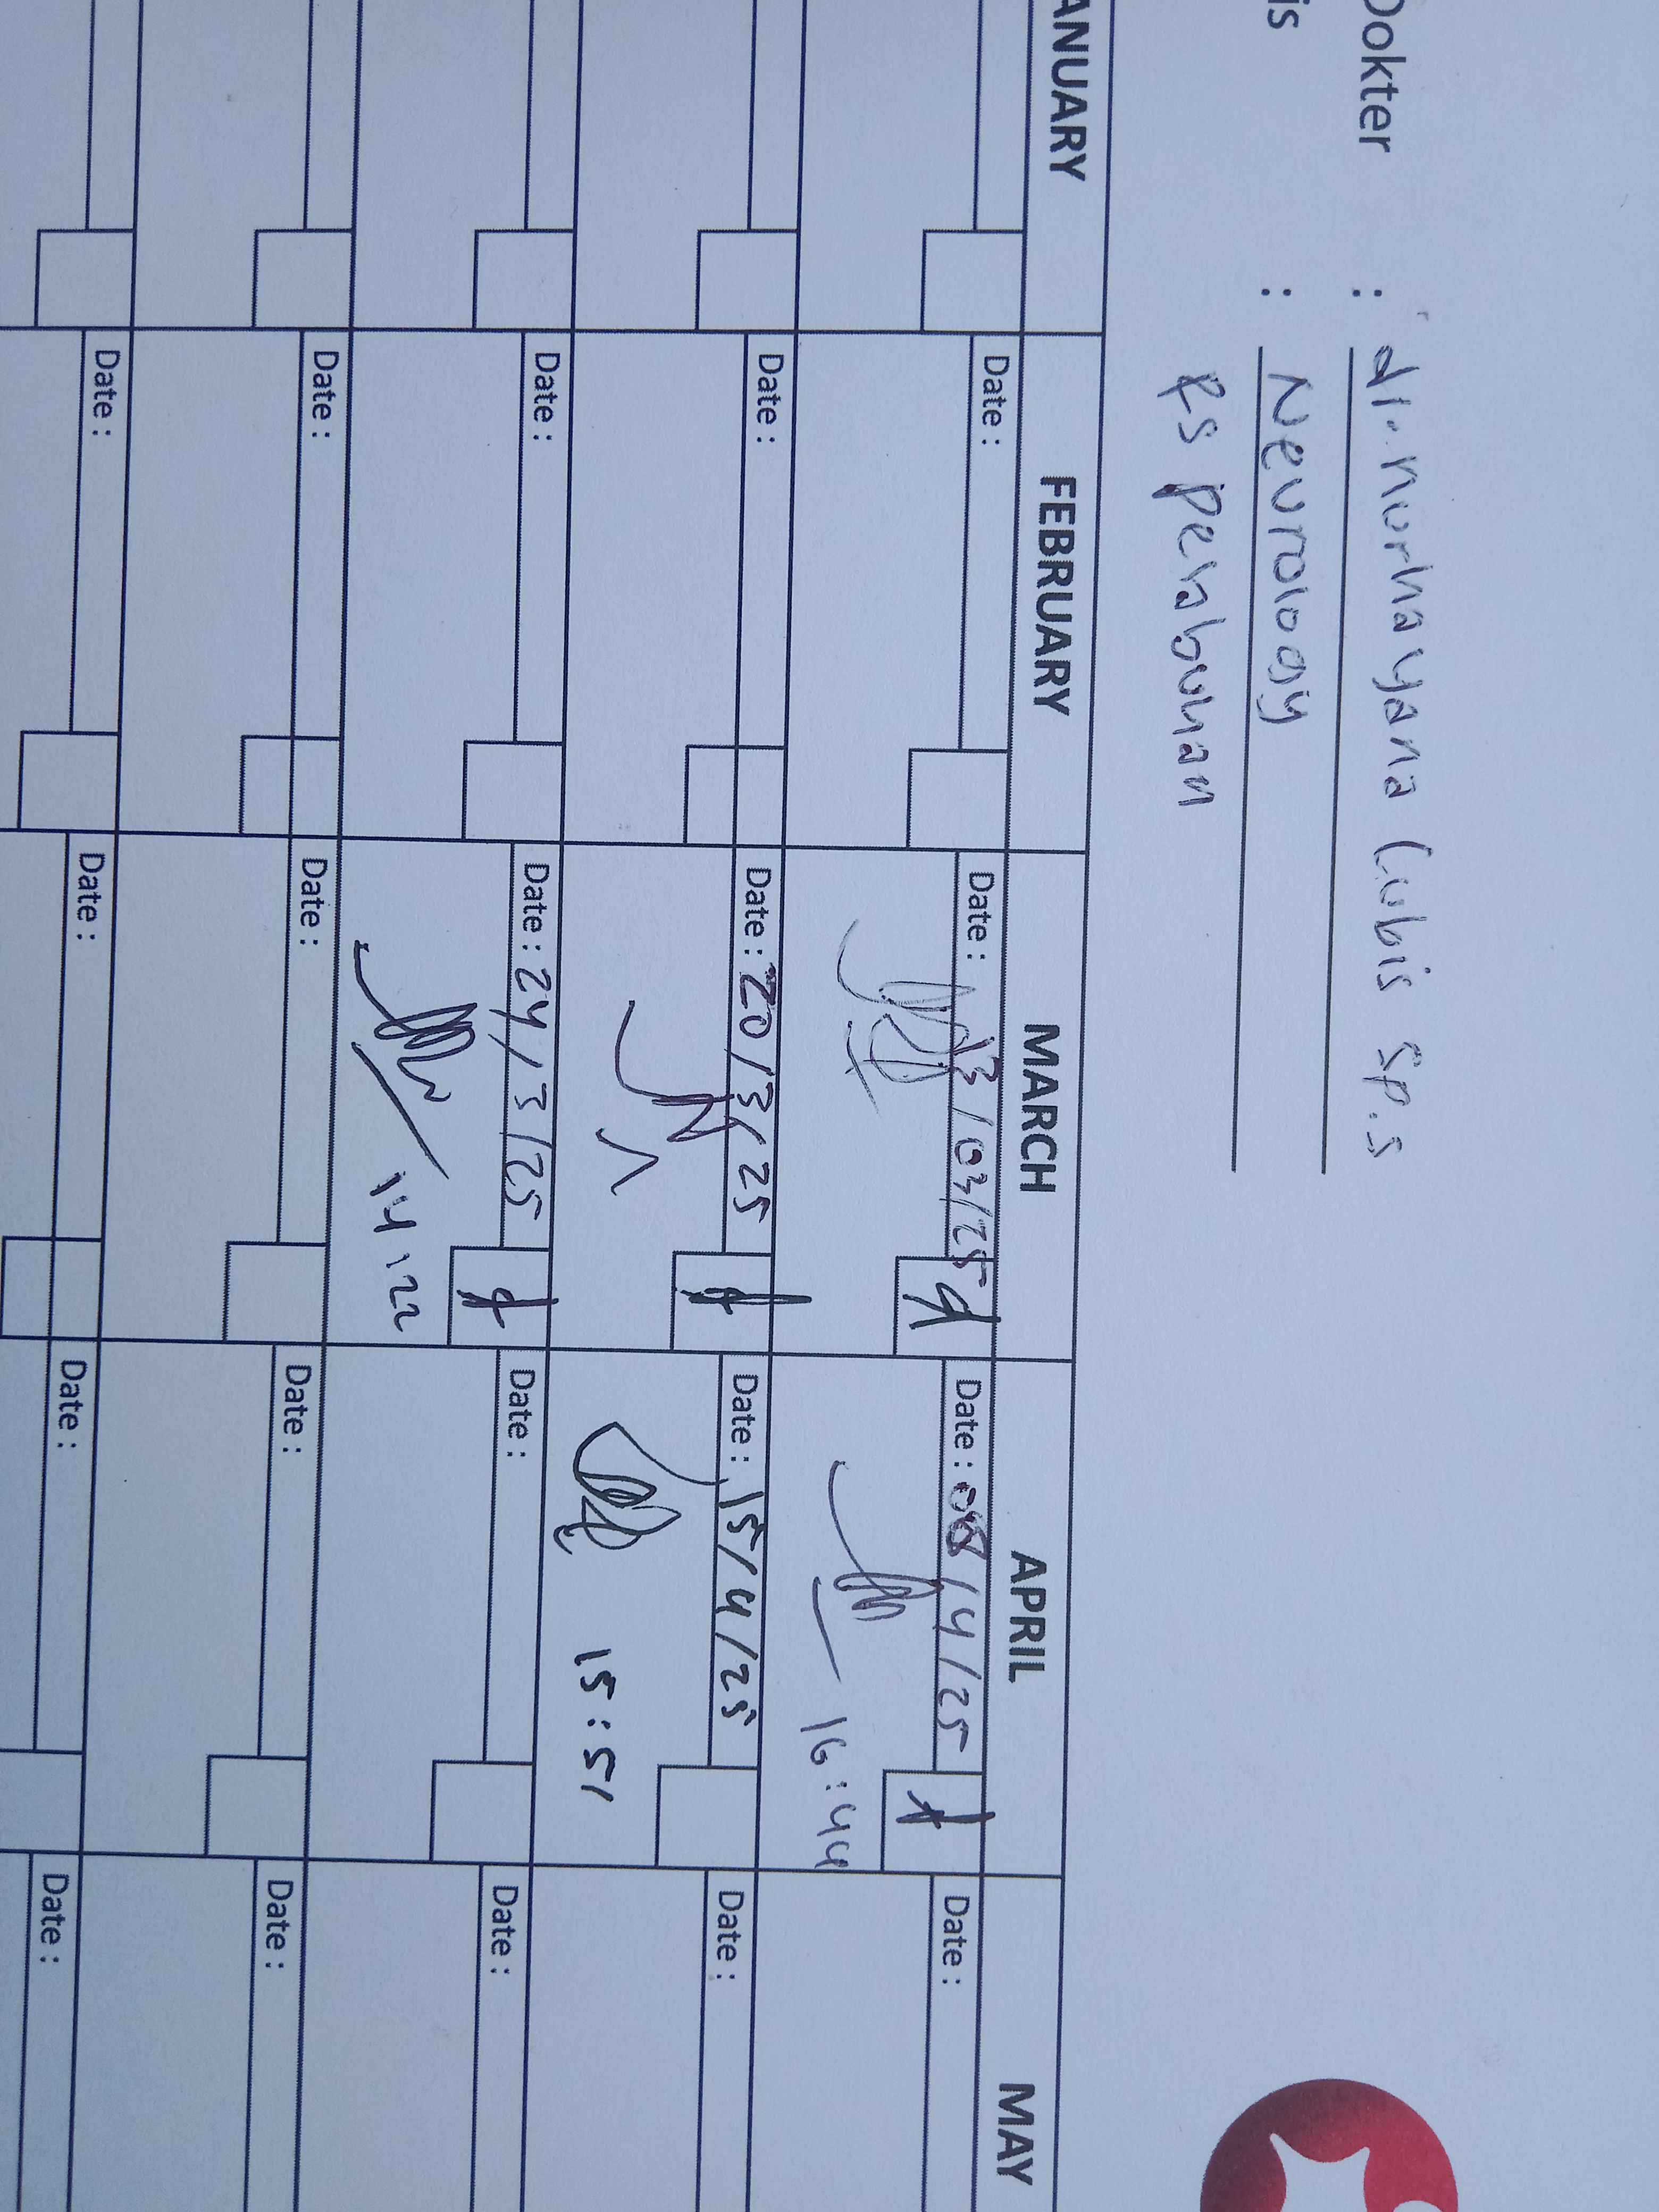 Dokter : dr. nurhayana Lubis Sp.S
is : Neurology
RS perabuhan
ANUARY FEBRUARY MARCH APRIL MAY
Date : Date : 13/03/25 Date : 08/4/25 Date :
16:44
Date : Date : 20/3/25 Date : 15/4/25 Date :
15:51
Date : Date : 24/3/25 Date : Date :
14:22
Date : Date : Date : Date :
Date : Date : Date : Date :